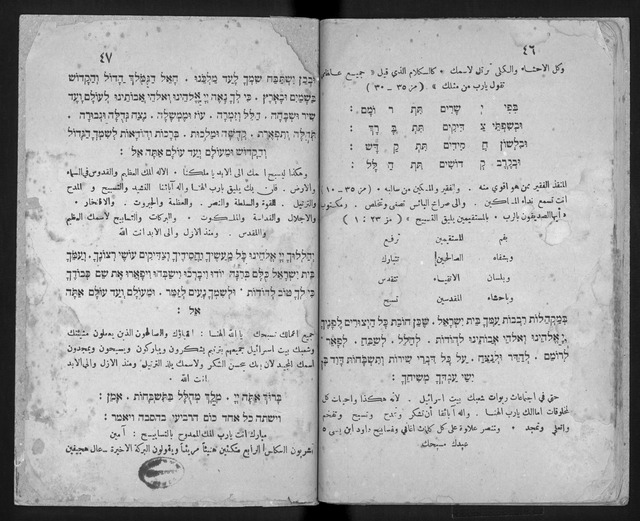 ٤٦
وكل الاحشاء والكلى ترتل لاسمك » كالكلام الذي قيل « جميع عظامي
تقول يارب من مثلك » ( مز ٣٥ — )
בְּפִי יְ שָׁרִים תִּתְ רוֹמָם :
וּבְשִׂפְתֵי צַ דִּיקִים תִּתְ בָּרֵךְ :
וּבִלְשׁוֹן חֲ סִידִים תִּתְ קַדָּשׁ :
וּבְקֶרֶב קְ דוֹשִׁים תִּתְ הַלָּל :
المنقذ الفقير ممن هو اقوى منه . والفقير والمسكين من سالبه » ( مز ٣٥ — ١٠ )
انت تسمع نداء المساكين . والى صراخ البائس تصغى وتخلص . ومكتوب
ايها الصديقون بالرب . بالمستقيمين يليق التسبيح » ( مز ٢٣ : ١ )
بفم للمستقيمين ترتفع
وبشفاه الصالحين تتبارك
وبلسان الاتقياء تتقدس
وباحشاء المقدسين تسبح
בְּמַקְהֲלוֹת רִבְבוֹת עַמְּךָ בֵּית יִשְׂרָאֵל . שֶׁכֵּן חוֹבַת כָּל הַיְצוּרִים לְפָנֶיךָ
יְיָ אֱלֹהֵינוּ וֵאלֹהֵי אֲבוֹתֵינוּ לְהוֹדוֹת . לְהַלֵּל . לְשַׁבֵּחַ . לְפָאֵר .
לְרוֹמֵם . לְהַדֵּר . וּלְנַצֵּחַ . עַל כָּל דִּבְרֵי שִׁירוֹת וְתִשְׁבְּחוֹת דָּוִד בֶּן
יִשַׁי עַבְדְּךָ מְשִׁיחֶךָ :
حتى في اجتماعات ربوات شعبك بيت اسرائيل . لانه هكذا واجبات كل
المخلوقات امامك يارب الهنا . واله آبائنا أن نشكر ونمدح ونسبح ونفخم
ونعلي ونمجد . وننصر علاوة على كل كلمات اغاني وتسابيح داود ابن يسى
عبدك مسيحك
٤٧
וּבְכֵן יִשְׁתַּבַּח שִׁמְךָ לָעַד מַלְכֵּנוּ . הָאֵל הַמֶּלֶךְ הַגָּדוֹל וְהַקָּדוֹשׁ
בַּשָּׁמַיִם וּבָאָרֶץ . כִּי לְךָ נָאֶה יְיָ אֱלֹהֵינוּ וֵאלֹהֵי אֲבוֹתֵינוּ לְעוֹלָם וָעֶד
שִׁיר וּשְׁבָחָה . הַלֵּל וְזִמְרָה . עֹז וּמֶמְשָׁלָה . נֶצַח גְּדֻלָּה וּגְבוּרָה .
תְּהִלָּה וְתִפְאֶרֶת . קְדֻשָּׁה וּמַלְכוּת . בְּרָכוֹת וְהוֹדָאוֹת לְשִׁמְךָ הַגָּדוֹל
וְהַקָּדוֹשׁ וּמֵעוֹלָם וְעַד עוֹלָם אַתָּה אֵל :
وهكذا ليسبح اسمك الى الابد يا ملكنا . الاله الملك العظيم والقدوس في السماء
والارض . فلمن بك يليق يارب الهنا واله آبائنا النشيد والتسبيح والمدح
والترتيل . القوة والسلطة والنصر . والعظمة والجبروت . والافتخار
والاجلال والقداسة والملكوت . والبركات والتسابيح لاسمك العظيم
والمقدس . ومنذ الازل والى الابد انت الله
יְהַלְלוּךָ יְיָ אֱלֹהֵינוּ כָּל מַעֲשֶׂיךָ וַחֲסִידֶיךָ וְצַדִּיקִים עוֹשֵׂי רְצוֹנֶךָ . וְעַמְּךָ
בֵּית יִשְׂרָאֵל כֻּלָּם בְּרִנָּה יוֹדוּ וִיבָרְכוּ וִישַׁבְּחוּ וִיפָאֲרוּ אֶת שֵׁם כְּבוֹדֶךָ
כִּי לְךָ טוֹב לְהוֹדוֹת וּלְשִׁמְךָ נָעִים לְזַמֵּר . וּמֵעוֹלָם וְעַד עוֹלָם אַתָּה
אֵל :
جميع اعمالك تسبحك يا الله الهنا : اتقياؤك والصالحون الذين يعملون مشيئتك
وشعبك بيت اسرائيل جميعهم بترنيم يشكرون ويباركون ويسبحون ويمجدون
اسمك المجيد لان بك يحسن الشكر ولاسمك يلذ الترتيل ومنذ الازل والى الابد
انت الله .
בָּרוּךְ אַתָּה יְיָ . מֶלֶךְ מְהֻלָּל בַּתִּשְׁבָּחוֹת . אָמֵן :
וישתה כל אחד כוס הרביעי בהסבה ויאמר :
مبارك انت يارب الملك الممدوح بالتسابيح : آمين
يشربون الكاس الرابع متكئين هنيئاً مريئاً ويقولون البركة الاخيرة